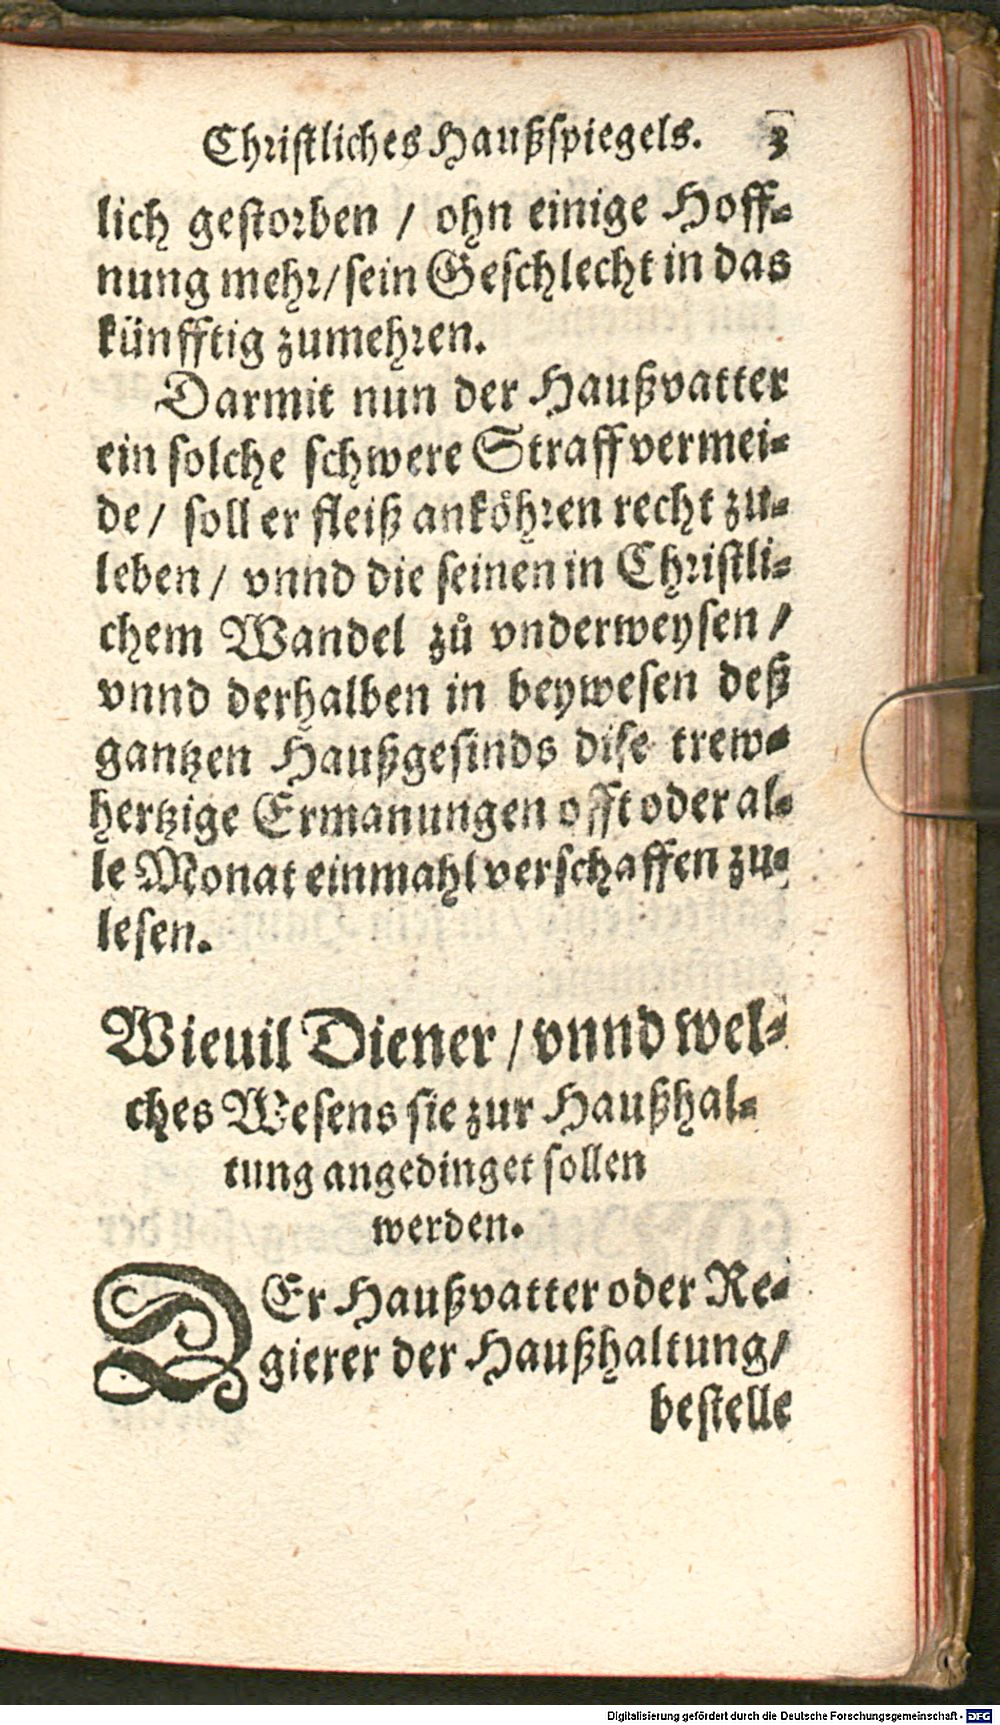 Christliches Haußspiegels. 3
lich gestorben / ohn einige Hoff-
nung mehr/sein Geschlecht in das
künfftig zumehren.
Darmit nun der Haußvatter
ein solche schwere Straff vermei-
de/ soll er fleiß anköhren recht zu-
leben / vnnd die seinen in Christli-
chem Wandel zů vnderweysen /
vnnd derhalben in beywesen deß
gantzen Haußgesinds dise trew-
hertzige Ermanungen offt oder al-
le Monat einmahl verschaffen zu-
lesen.
Wieuil Diener / vnnd wel-
ches Wesens sie zur Haußhal-
tung angedinget sollen
werden.
DEr Haußvatter oder Re-
gierer der Haußhaltung/
bestelle
Digitalisierung gefördert durch die Deutsche Forschungsgemeinschaft - DFG